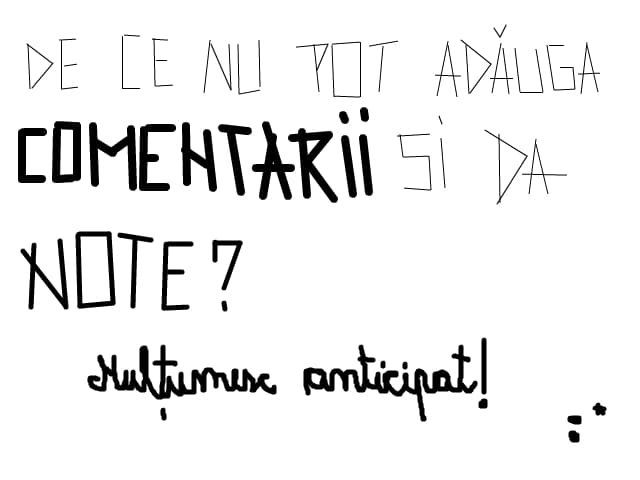 DE CE NU POT ADĂUGA
COMENTARII SI DA
NOTE?
Mulțumesc anticipat!
:*